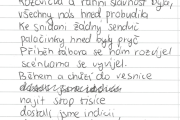 a ranní slavnost byla,
všechny nás hned probudila
Ke snídani žádný sendvič
palačinky hned byly pryč
Příběh tábora se nám rozvíjel
se vyvíjel.
Během a chůzí do vesnice
najít stop tisíce
dostali jsme indicii,